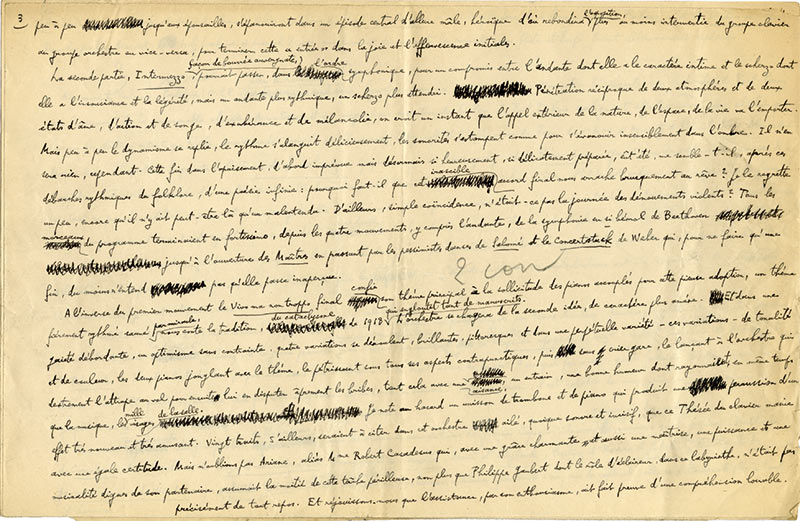 3
peu à peu jusqu'aux épousailles, s'épanouiront dans un épisode central d'allure mâle, héroïque d'où rebondira l'exposition, plus ou moins intervertie du groupe clavier
au groupe orchestre ou vice-versa, pour terminer cette entrée dans la joie et l'effervescence initiales.
La seconde partie, Intermezzo façon de bourrée auvergnate, pourrait passer, dans l'ordre symphonique, pour un compromis entre l'andante dont elle a le caractère intime et le scherzo dont
elle a l'insouciance et la légèreté, mais un andante plus rythmique, un scherzo plus attendri. Pénétration réciproque de deux atmosphères et de deux
états d'âme, d'action et de songe, d'exubérance et de mélancolie, on croit un instant que l'appel extérieur de la nature, de l'espace, de la vie va l'emporter.
Mais peu à peu le dynamisme se replie, le rythme s'alanguit délicieusement, les sonorités s'estompent comme pour s'évanouir insensiblement dans l'ombre. Il n'en
sera rien, cependant. Cette fin dans l'apaisement, d'abord imprévue mais désormais si heureusement, si délicatement préparée, eût été, me semble-t-il, après ces
débauches rythmiques du folklore, d'une poésie infinie : pourquoi faut-il que cet irascible accord final nous arrache brusquement au rêve ? Je le regrette
un peu, encore qu'il n'y ait peut-être là qu'un malentendu. D'ailleurs, simple coïncidence, n'était-ce pas la journée des dénouements violents ? Tous les
morceaux du programme terminaient en fortissimo, depuis les quatre mouvements, y compris l'andante, de la symphonie en si bémol de Beethoven
jusqu'à l'ouverture des Maîtres en passant par les pessimistes danses de Salomé et le Concertstück de Weber qui, pour ne faire qu'une
fin, du moins n'entend pas qu'elle passe inaperçue.
2 con
A l'inverse du premier mouvement le Vivo ma non troppo final confie son thème principal à la sollicitude des pianos accouplés pour cette pieuse adoption, un thème
fièrement rythmé sauvé parminables du cataclysme de 1918 qui engloutit tant de manuscrits. L'orchestre se chargera de la seconde idée, de caractère plus amène. Et dans une
gaieté débordante, un optimisme sans contrainte quatre variations se déroulent, brillantes, pittoresques et dans une perpétuelle variété - ces variations - de tonalité
et de couleur, les deux pianos jonglant avec le thème, le pétrissant sous tous ses aspects contrapuntiques, puis sans crier gare, le lançant à l'orchestre qui
destrement l'attrape au vol pour ensuite lui en disputer âprement les bribes, tout cela avec une aisance, un entrain, une bonne humeur dont rayonnaient en même temps
que la musique, les visages, mille de la salle. Je note au hasard un unisson de trombone et de piano qui produit une percussion d'un
effet très nouveau et très amusant. Vingt traits, d'ailleurs, seraient à citer dans cet orchestre ailé, quoique sonore et incisif, que ce Thésée du clavier manie
avec une égale certitude. Mais n'oublions pas Ariane, alias Mme Robert Casadesus qui, avec une grâce charmante et aussi une maîtrise, une puissance et une
musicalité dignes de son partenaire, assumait la moitié de cette tâche périlleuse, non plus que Philippe Gaubert dont le rôle d'éclaireur dans ce labyrinthe, n'était pas
précisément de tout repos. Et réjouissons-nous que l'assistance, par son enthousiasme, ait fait preuve d'une compréhension louable.